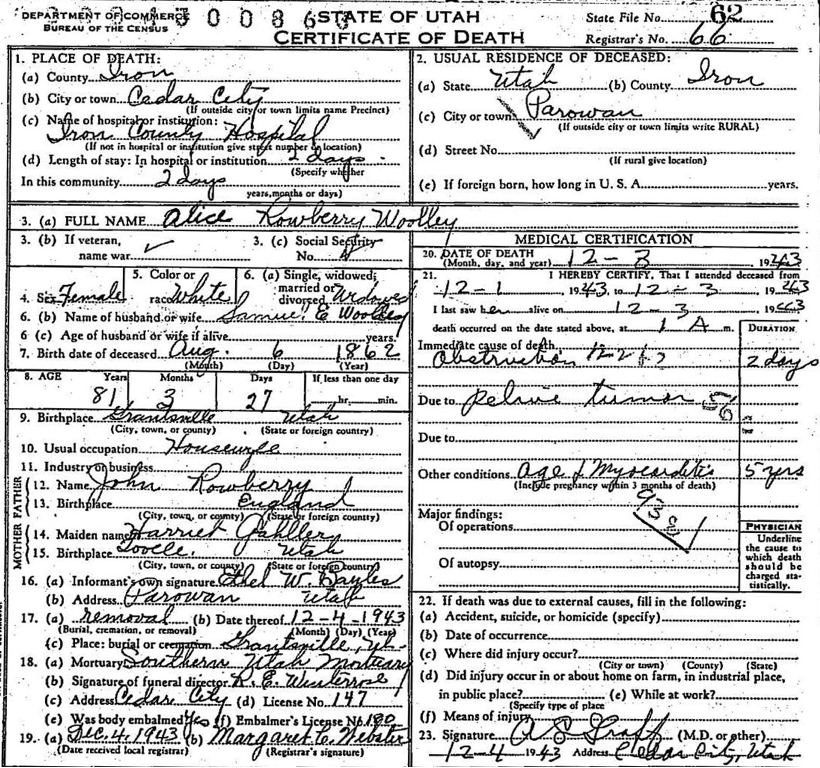 DEPARTMENT OF COMMERCE
BUREAU OF THE CENSUS
STATE OF UTAH
CERTIFICATE OF DEATH
State File No. 62
Registrar's No. 66
1. PLACE OF DEATH:
(a) County Iron
(b) City or town Cedar City
(If outside city or town limits name Precinct)
(c) Name of hospital or institution:
Iron County Hospital
(If not in hospital or institution give street number or location)
(d) Length of stay: In hospital or institution 2 days
(Specify whether
In this community 2 days
years, months or days)
2. USUAL RESIDENCE OF DECEASED:
(a) State Utah (b) County Iron
(c) City or town Parowan
(If outside city or town limits write RURAL)
(d) Street No.
(If rural give location)
(e) If foreign born, how long in U. S. A. years.
3. (a) FULL NAME Alice Rowberry Woolley
3. (b) If veteran,
name war
3. (c) Social Security
No.
4. Sex Female
5. Color or
race White
6. (a) Single, widowed,
married or
divorced Widowed
6. (b) Name of husband or wife Samuel E Woolley
6. (c) Age of husband or wife if alive years.
7. Birth date of deceased Aug. 6 1862
(Month) (Day) (Year)
8. AGE Years Months Days If less than one day
81 3 27 hr. min.
9. Birthplace Grantsville Utah
(City, town, or county) (State or foreign country)
10. Usual occupation Housewife
11. Industry or business
FATHER
12. Name John Rowberry
13. Birthplace England
(City, town, or county) (State or foreign country)
MOTHER
14. Maiden name Harriet
15. Birthplace Tooele, Utah
(City, town, or county) (State or foreign country)
16. (a) Informant's own signature Ethel W. Bayles
(b) Address Parowan Utah
17. (a) removal (b) Date thereof 12-4-1943
(Burial, cremation, or removal) (Month) (Day) (Year)
(c) Place: burial or cremation Grantsville, Ut.
18. (a) Mortuary Southern Utah Mortuary
(b) Signature of funeral director R. E. Winterrose
(c) Address Cedar City (d) License No. 147
(e) Was body embalmed Yes (f) Embalmer's License No. 180
19. (a) Dec. 4, 1943 (b) Margaret C. Webster
(Date received local registrar) (Registrar's signature)
MEDICAL CERTIFICATION
20. DATE OF DEATH 12-3 1943
(Month, day, and year)
21. I HEREBY CERTIFY, That I attended deceased from
12-1 1943, to 12-3 1943
I last saw her alive on 12-3 1943
death occurred on the date stated above, at 1 A m.
DURATION
Immediate cause of death
Obstruction 2 days
Due to Pelvic tumor 56
Due to
Other conditions Age & Myocarditis 5 yrs
(Include pregnancy within 3 months of death)
Major findings:
Of operations
Of autopsy
PHYSICIAN
Underline
the cause to
which death
should be
charged sta-
tistically.
22. If death was due to external causes, fill in the following:
(a) Accident, suicide, or homicide (specify)
(b) Date of occurrence
(c) Where did injury occur?
(City or town) (County) (State)
(d) Did injury occur in or about home on farm, in industrial place,
in public place? (e) While at work?
(Specify type of place
(f) Means of injury
23. Signature A L Graff (M.D. or other)
12-4 1943 Address Cedar City, Utah